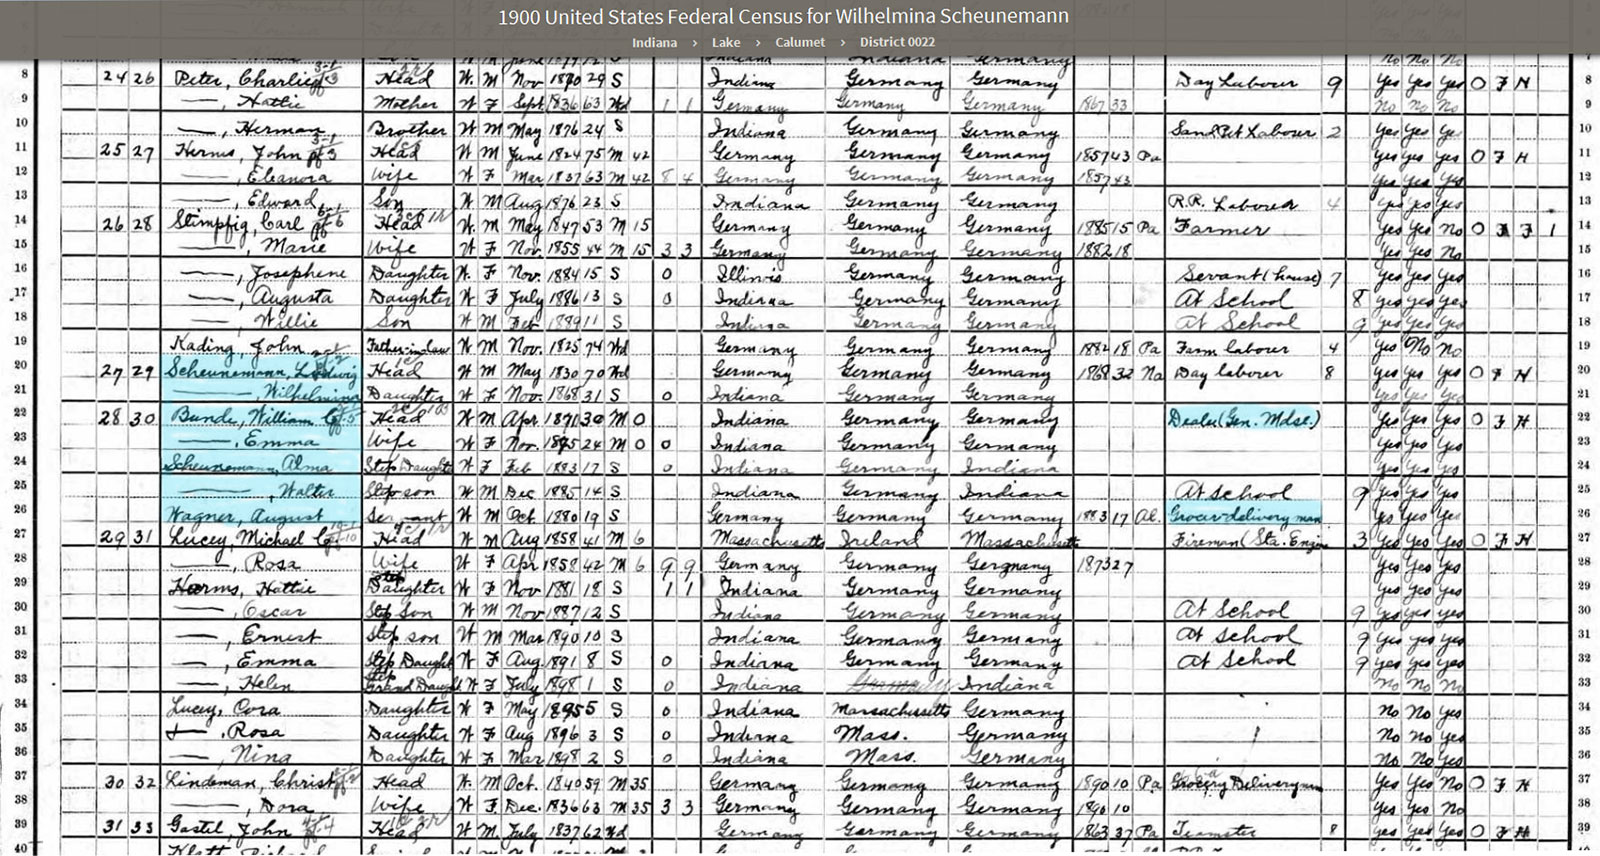 1900 United States Federal Census for Wilhelmina Scheunemann
Indiana › Lake › Calumet › District 0022
8 24 26 Peter, Charlie Head W M Nov 1870 29 S Indiana Germany Germany Day Laborer 9 Yes Yes Yes O F H 8
9 —, Hattie Mother W F Sept 1836 63 Wd 1 1 Germany Germany Germany 1867 33 No No No 9
10 —, Herman Brother W M May 1876 24 S Indiana Germany Germany Sand Pit Laborer 2 Yes Yes Yes 10
11 25 27 Herms, John Head W M June 1824 75 M 42 Germany Germany Germany 1857 43 Pa Yes Yes Yes O F H 11
12 —, Eleanora Wife W F Mar 1837 63 M 42 8 4 Germany Germany Germany 1857 43 Yes Yes Yes 12
13 —, Edward Son W M Aug 1876 23 S Indiana Germany Germany R.R. Laborer 4 Yes Yes Yes 13
14 26 28 Stimpfig, Carl Head W M May 1847 53 M 15 Germany Germany Germany 1885 15 Pa Farmer Yes Yes No O F 1 14
15 —, Marie Wife W F Nov. 1855 44 M 15 3 3 Germany Germany Germany 1882 18 Yes Yes No 15
16 —, Josephene Daughter W F Nov. 1884 15 S 0 Illinois Germany Germany Servant (house) 7 Yes Yes Yes 16
17 —, Augusta Daughter W F July 1886 13 S 0 Indiana Germany Germany At School 8 Yes Yes Yes 17
18 —, Willie Son W M Feb 1889 11 S Indiana Germany Germany At School 9 Yes Yes Yes 18
19 Kading, John Father-in-law W M Nov. 1825 74 Wd Germany Germany Germany 1882 18 Pa Farm laborer 4 Yes No No 19
20 27 29 Scheunemann, Ludwig Head W M May 1830 70 Wd Germany Germany Germany 1868 32 Na Day laborer 8 Yes Yes Yes O F H 20
21 —, Wilhelmina Daughter W F Nov 1868 31 S 0 Indiana Germany Germany Yes Yes Yes 21
22 28 30 Bunde, William Head W M Apr 1871 30 M 0 Indiana Germany Germany Dealer (Gen. Mdse.) Yes Yes Yes O F H 22
23 —, Emma Wife W F Nov. 1875 24 M 0 0 Indiana Germany Germany Yes Yes Yes 23
24 Scheunemann, Alma Step Daughte W F Feb 1883 17 S 0 Indiana Germany Indiana Yes Yes Yes 24
25 —, Walter Step son W M Dec 1885 14 S Indiana Germany Indiana At School 9 Yes Yes Yes 25
26 Wagner, August Servant W M Oct. 1880 19 S Germany Germany Germany 1883 17 Al. Grocer delivery man Yes Yes Yes 26
27 29 31 Lucey, Michael Head W M Aug 1858 41 M 6 Massachusetts Ireland Massachusetts Fireman (Sta. Engine 3 Yes Yes Yes O F H 27
28 —, Rosa Wife W F Apr 1858 42 M 6 9 9 Germany Germany Gergnany 1873 27 Yes Yes Yes 28
29 Harms, Hattie Step Daughter W F Nov 1881 18 S 1 1 Indiana Germany Germany Yes Yes Yes 29
30 —, Oscar Step Son W M Nov 1887 12 S Indiana Germany Germany At School 9 Yes Yes Yes 30
31 —, Ernest Step son W M Mar 1890 10 S Indiana Germany Germany At School 9 Yes Yes Yes 31
32 —, Emma Step Daught W F Aug. 1891 8 S 0 Indiana Germany Germany At School 9 Yes Yes Yes 32
33 —, Helen Step Grand Daugh W F July 1898 1 S 0 Indiana Indiana No No No 33
34 Lucey, Cora Daughter W F May 1895 5 S 0 Indiana Massachussetts Germany No No Yes 34
35 —, Rosa Daughter W F Aug 1896 3 S 0 Indiana Mass. Germany No No Yes 35
36 —, Nina Daughter W F Mar 1898 2 S 0 Indiana Mass. Germany No No Yes 36
37 30 32 Lindeman, Christ Head W M Oct. 1840 59 M 35 Germany Germany Germany 1890 10 Pa Grocery Deliveryman Yes Yes No O F H 37
38 —, Dora Wife W F Dec. 1836 63 M 35 3 3 Germany Germany Germany 1890 10 Yes Yes No 38
39 31 33 Gastel, John Head W M July 1837 62 Wd Germany Germany Germany 1863 37 Pa Teamster 8 Yes Yes Yes O F H 39
40